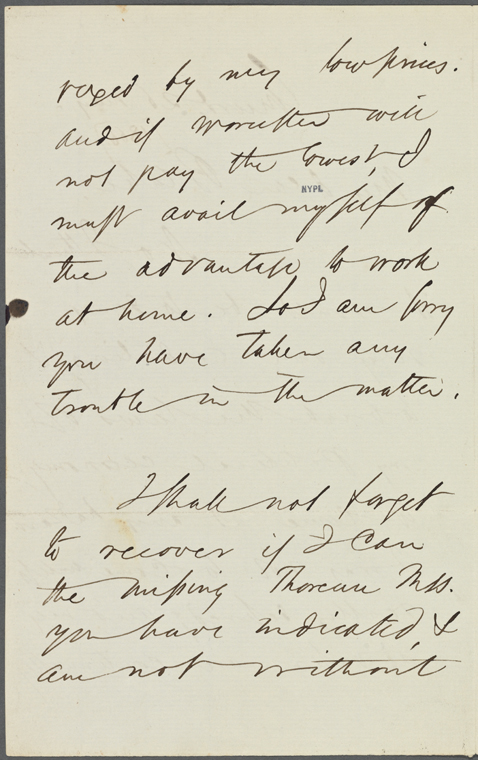 vexed by my low prices.
and if Worcester will
not pay the lowest, I
must avail myself of
NYPL
the advantage to work
at home. So I am sorry
you have taken any
trouble in the matter.
I shall not forget
to recover if I can
the missing Thoreau Mss.
you have indicated, &
am not without